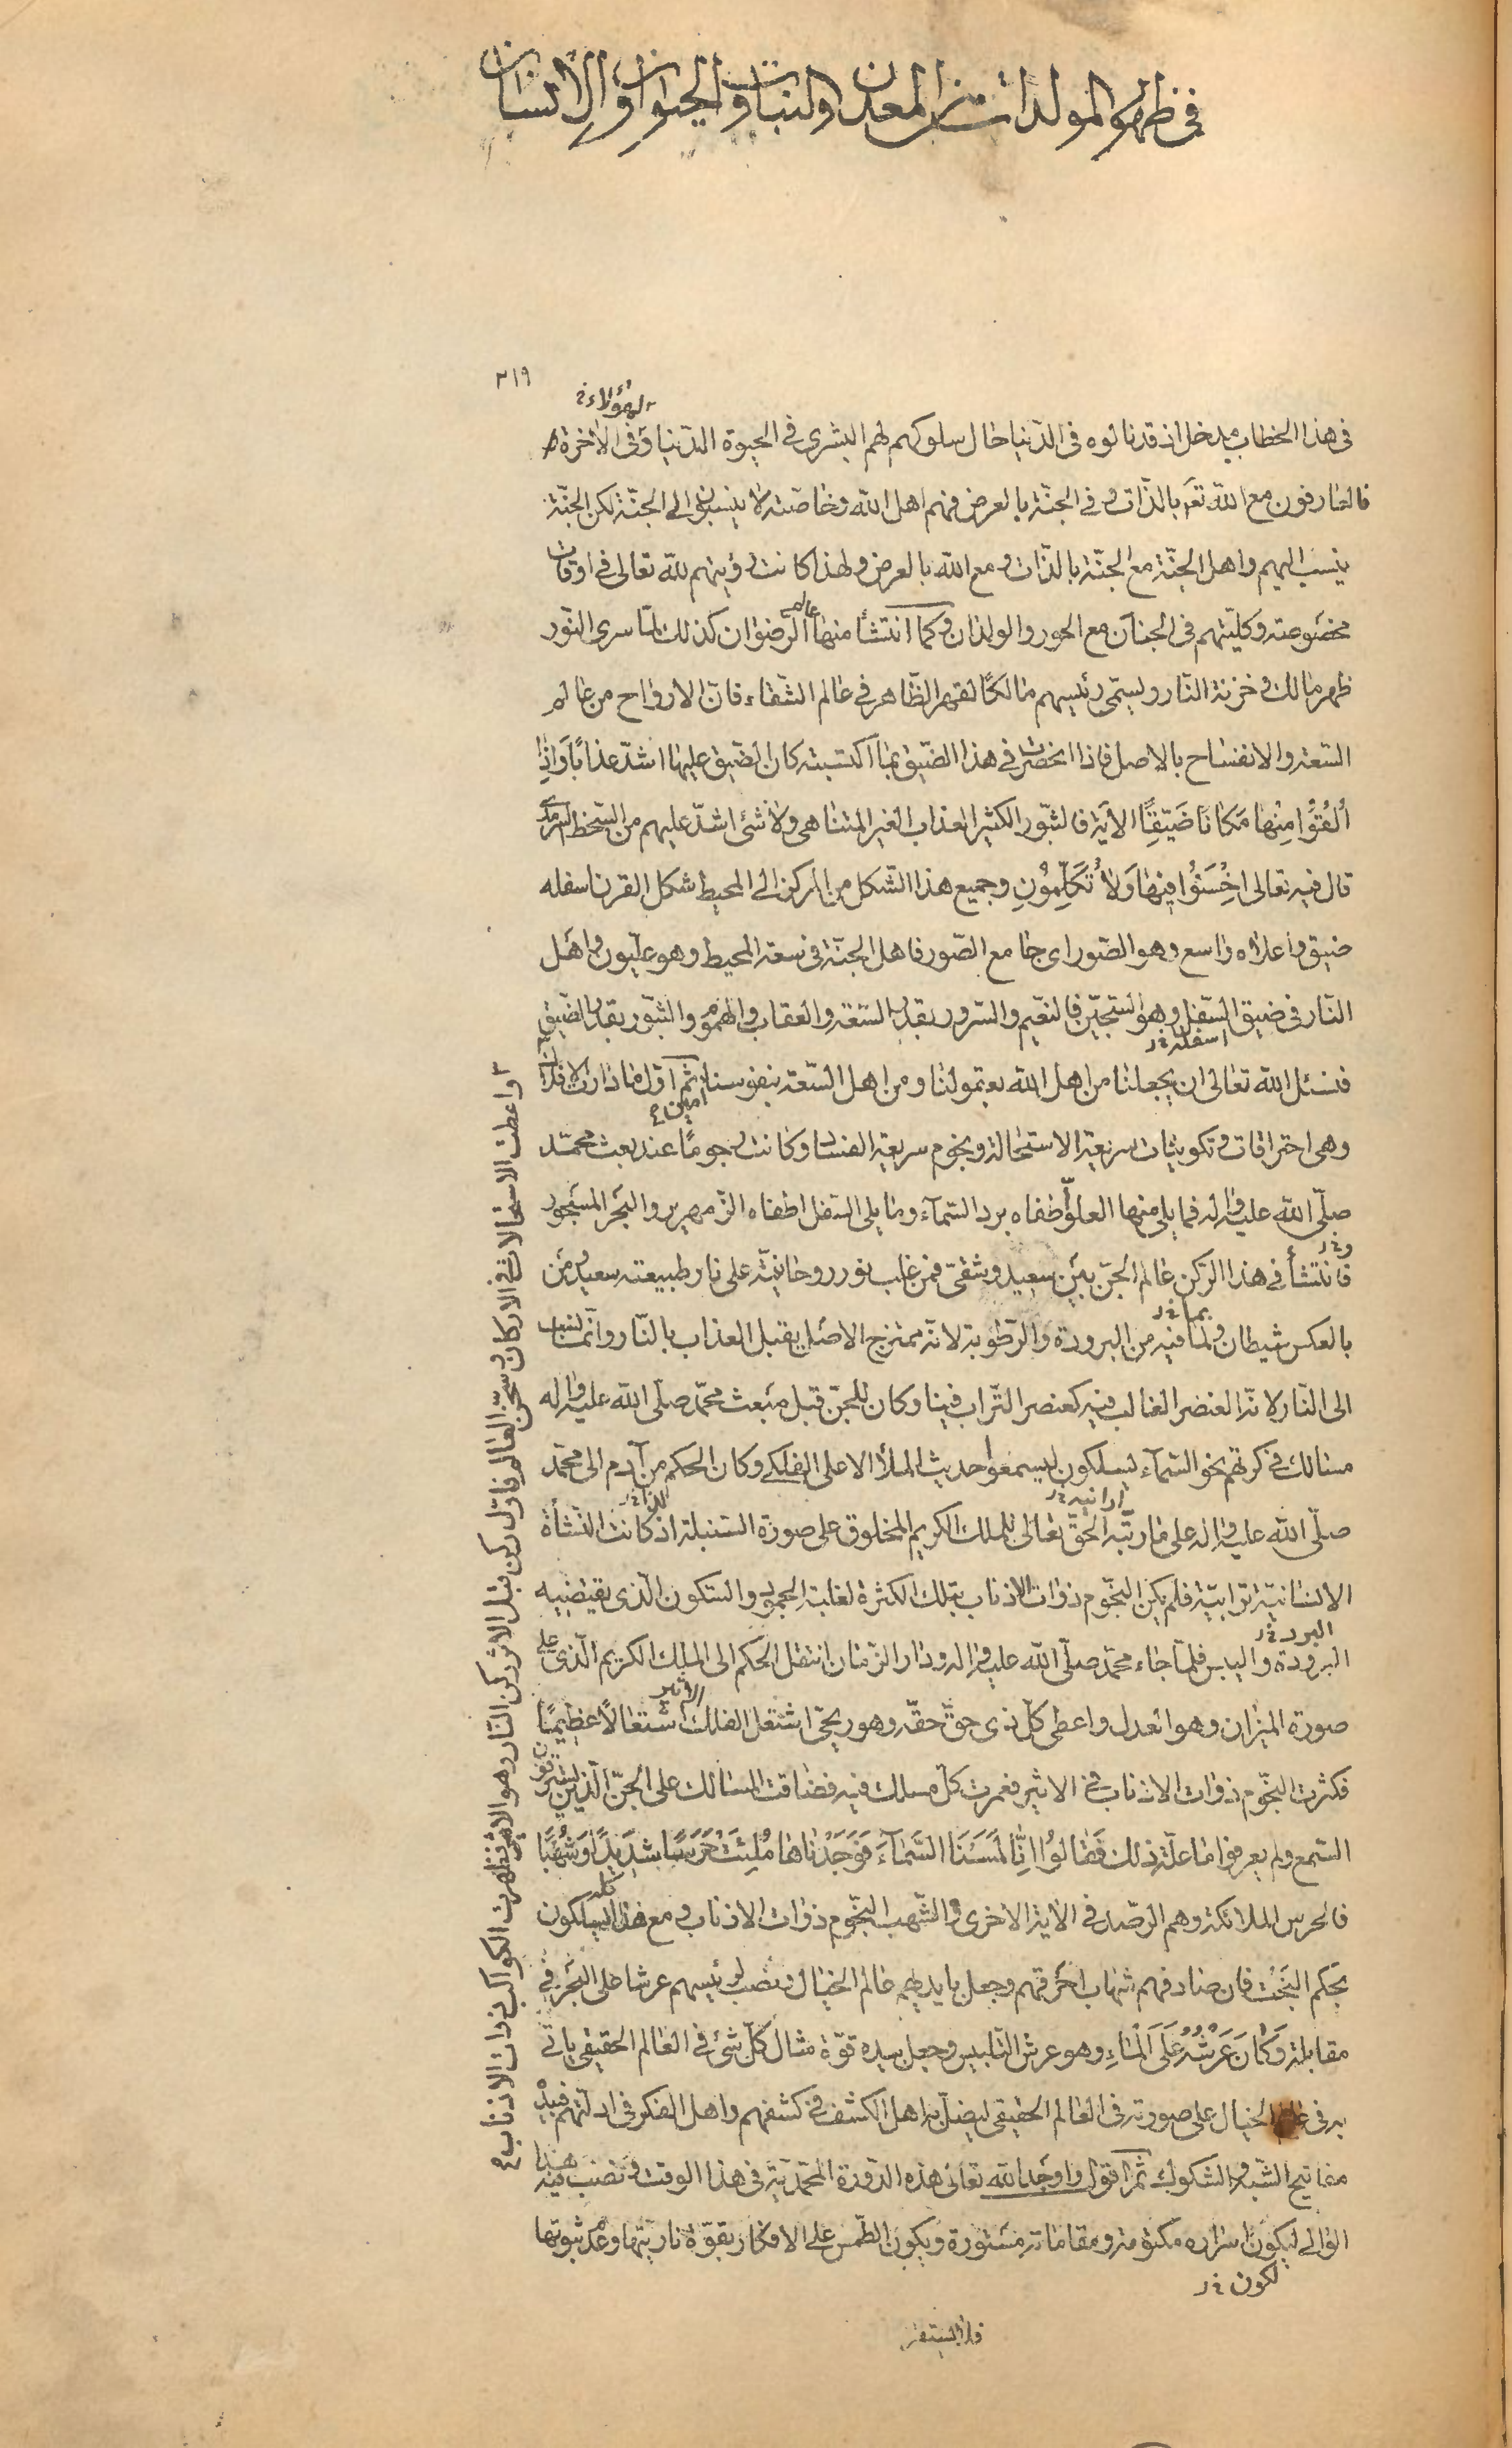 في ظهور المولدات من المعدن والنبات والحيوان والانسان
٣١٩
لهؤلاء خ
في هذا الخطاب مدخل اذ قد نالوه في الدّنيا حال سلوكهم لهم البشرى في الحيوة الدّنيا وفي الاخرة
فالعارفون مع اللّه تع بالذّات وفي الجنّة بالعرض فهم اهل اللّه وخاصّته لا ينسبون الى الجنّة لكن الجنّة
ينسب اليهم واهل الجنّة مع الجنّة بالذّات ومع اللّه بالعرض ولهذا كانت رؤيتهم للّه تعالى في اوقات
مخصوصة وكليّتهم في الجنان مع الحور والولدان وكما انتشأ منها عالم الرّضوان كذلك لمّا سرى النّور
ظهر مالك وخزنة النّار ويسمّى رئيسهم مالكًا لقهر الظّاهر في عالم الشّقاء فانّ الارواح من عالم
السّعة والانفساح بالاصل فاذا انحصرت في هذا الضّيق بما اكتسبته كان الضّيق عليها اشدّ عذابًا وَاِذا
اُلْقُوا مِنْها مَكانًا ضَيِّقًا الاٰية فالثّبور الكثير العذاب الغير المتناهى ولا شئ اشدّ عليهم من السّخط السّرمدى
قال فيه تعالى اِخْسَئُوا فيها وَلا تُكَلِّمُونِ وجميع هذا الشّكل من المركز الى المحيط شكل القرن اسفله
ضيق واعلاه واسع وهو الصّور اى جامع الصّور فاهل الجنّة في سعة المحيط وهو علّيون واهل
النّار في ضيق السّفل وهو السّجّين فالنّعيم والسّرور بقدر السّعة والعقاب والهموم والثّبور بقدر الضّيق
اسفله خ ل
فنسئل اللّه تعالى ان يجعلنا من اهل اللّه بعقولنا ومن اهل السّعة بنفوسنا ثمّ اوّل ما دارت الافلاك
امين ٤
وهى احتراقات وتكوينات سريعة الاستحالة ونجوم سريعة الفساد وكانت رجومًا عند بعث محمّد
صلّى اللّه عليه واله فما يلى منها العلوّ اطفاه برد السّماء وما يلى السّفل اطفاه الزّمهرير والبحر المسجور
و خ ل
فانتشأ في هذا الرّكن عالم الجنّ بين سعيد وشقىّ فمن غلب نور روحانيّته على نار طبيعته سعيد ومن
بما خ ل
بالعكس شيطان ولما فيه من البرودة والرّطوبة لانّه ممتزج الاصل يقبل العذاب بالنّار وانّما نسب
الى النّار لانّه العنصر الغالب فيه كعنصر التّراب فينا وكان للجنّ قبل مبعث محمّد صلّى اللّه عليه واله
مسالك في كرتهم نحو السّماء يسلكون ليسمعوا حديث الملأ الاعلى الفلكى وكان الحكم من آدم الى محمّد
صلّى اللّه عليه واله على ما رتّبه الحقّ تعالى للملك الكريم المخلوق على صورة السّنبلة اذ كانت النّشأة
الانسانيّة ترابيّة فلم يكن النّجوم ذوات الاذناب بتلك الكثرة لغلبة الجمود والسّكون الّذى يقتضيه
البرد خ ل
البرودة واليبس فلمّا جاء محمّد صلّى اللّه عليه واله ودار الزّمان انتقل الحكم الى الملك الكريم الّذى على
صورة الميزان وهو العدل واعطى كلّ ذى حقّ حقّه وهو ريحىّ اشتعل الفلك الاثير اشتعالًا عظيمًا
فكثرت النّجوم ذوات الاذناب في الاثير فعمرت كلّ مسلك فيه فضاقت المسالك على الجنّ الّذين يسترقون
السّمع ولم يعرفوا ما علّة ذلك فَقالُوا اِنّا لَمَسْنَا السَّماءَ فَوَجَدْناها مُلِئَتْ حَرَسًا شَديدًا وَشُهُبًا
فالحرس الملائكة وهم الرّصد في الاٰية الاخرى والشّهب النّجوم ذوات الاذناب ومع هذا كلّه يسلكون
بحكم البَخْت فان صادفهم شهاب احرقهم وجعل بايديهم عالم الخيال ونصب لرئيسهم عرشا على البحر في
مقابلة وَكانَ عَرْشُهُ عَلَى الْماءِ وهو عرش التّلبيس وجعل بيده قوّة مثال كلّ شئ في العالم الحقيقى يأتى
به في عالم الخيال على صورته في العالم الحقيقى ليضلّ به اهل الكشف في كشفهم واهل الفكر في ادلّتهم فبيده
مفاتيح الشّبه والشكوك ثمّ اقول واوجد اللّه تعالى هذه الدّورة المحمّديّة في هذا الوقت ونصب فيه هذا
الوالى ليكون اسراره مكتومة ومقاماته مستورة ويكون الطّمس على الافكار بقوّة ناريّتها وعدم ثبوتها
لكون خ ل
فلا يستقر
واعطت الاستحالات في الاركان وسخّن العالم فاوّل ركن قبل الاثر ركن النّار وهو الاثير فظهرت الكواكب ذوات الاذناب